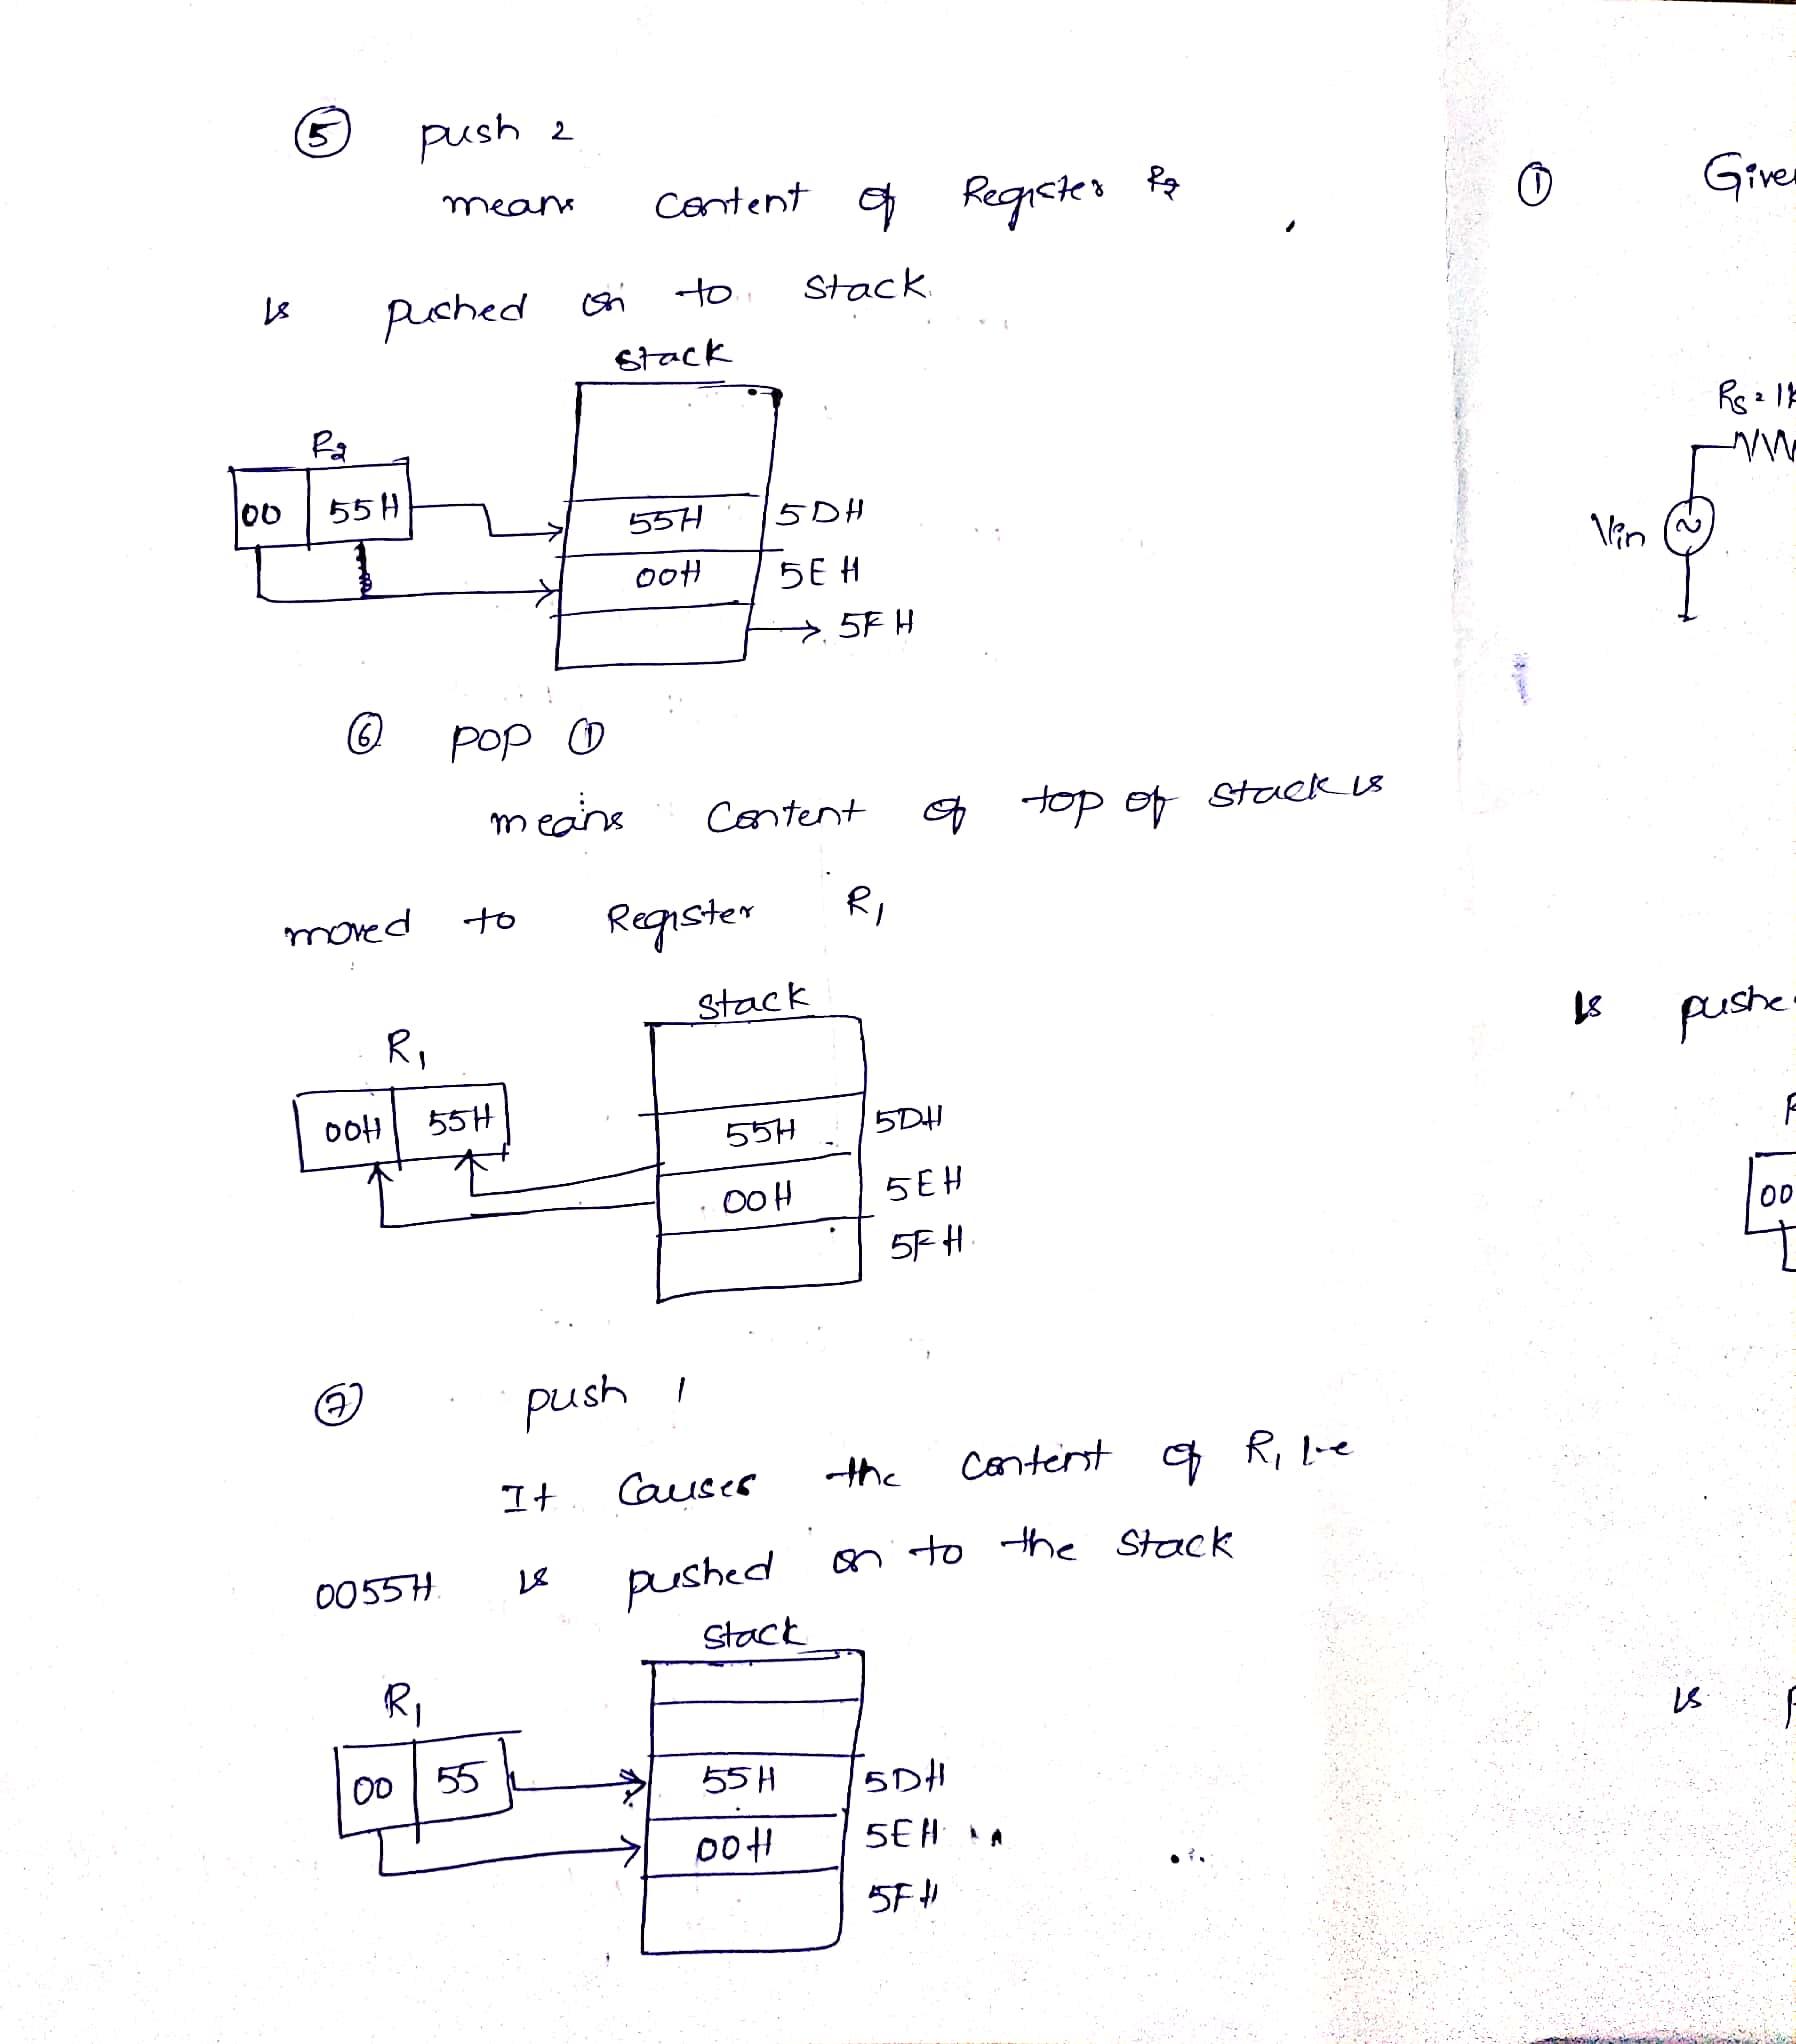 ⑤ push 2
means content of Register R2
is pushed on to stack.
stack
R2
00 55H
55H 5DH
00H 5EH
5FH
⑥ pop ①
means content of top of stack is
moved to Register R1
stack
R1
00H 55H
55H 5DH
00H 5EH
5FH
⑦ push 1
It causes the content of R1 i.e
0055H is pushed on to the stack
stack
R1
00 55
55H 5DH
00H 5EH
5FH
① Give
Rs = 1k
Vin
is pushe
00
is